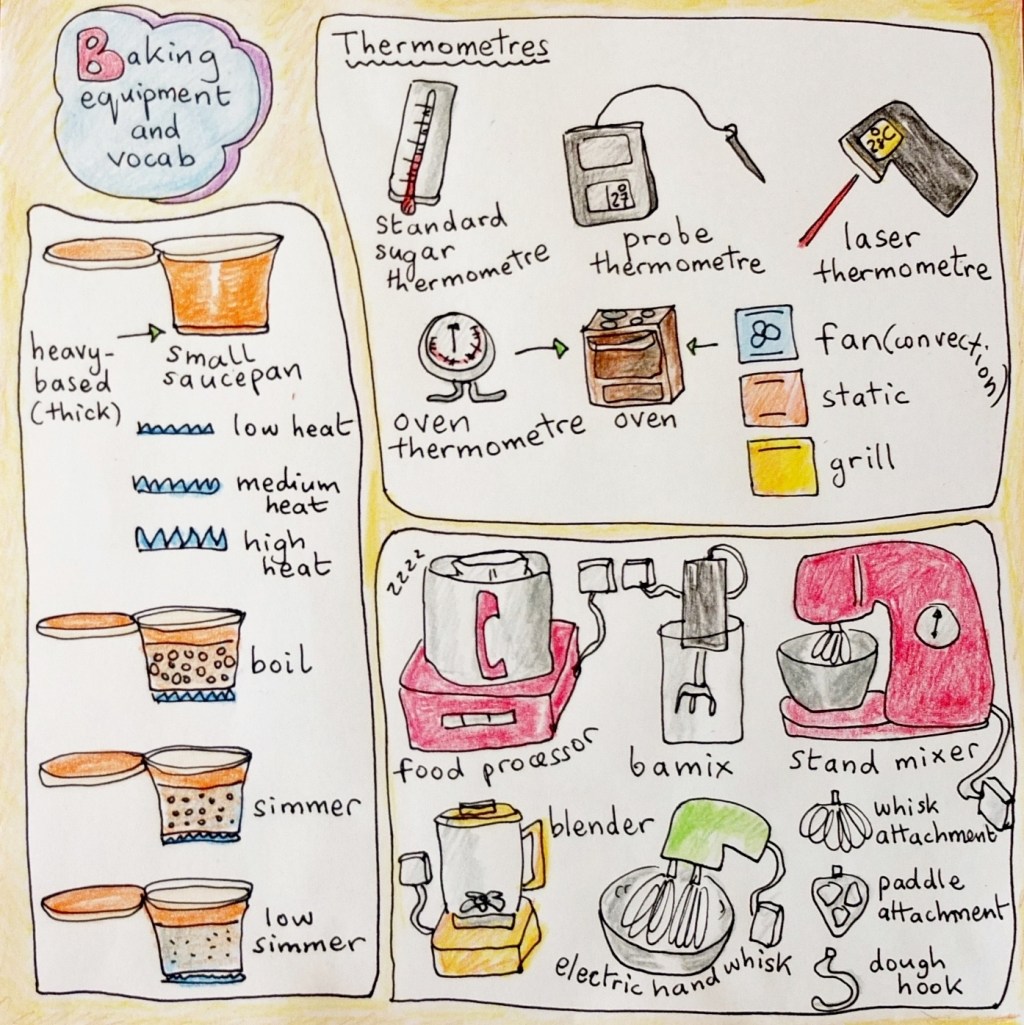 Baking
equipment
and
vocab
Thermometres
standard
sugar
thermometre
28°C
27°
probe
thermometre
laser
thermometre
oven
thermometre
oven
fan (convection)
static
grill
heavy-
based
(thick)
small
saucepan
low heat
medium
heat
high
heat
boil
simmer
low
simmer
zzzz
food processor
bamix
stand mixer
blender
electric hand whisk
whisk
attachment
paddle
attachment
dough
hook